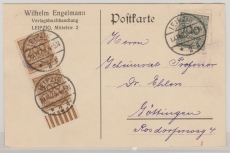 Wilhelm Engelmann
Verlagsbuchhandlung
LEIPZIG, Mittelstr. 2
Postkarte
LEIPZIG
Herrn
Geheimrat Professor
Dr. Ehlers
Göttingen
Rosdorferweg 4